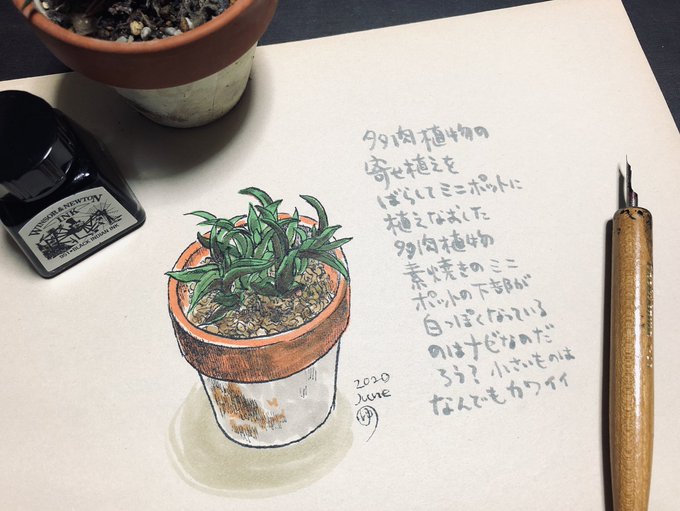 多肉植物の
寄せ植えを
ばらしてミニポットに
植えなおした
多肉植物
素焼きのミニ
ポットの下部が
白っぽくなっている
のはナゼなのだ
ろう? 小さいものは
なんでもカワイイ
2020
June
ゆ
WINSOR & NEWTON
INK
BLACK INDIAN INK